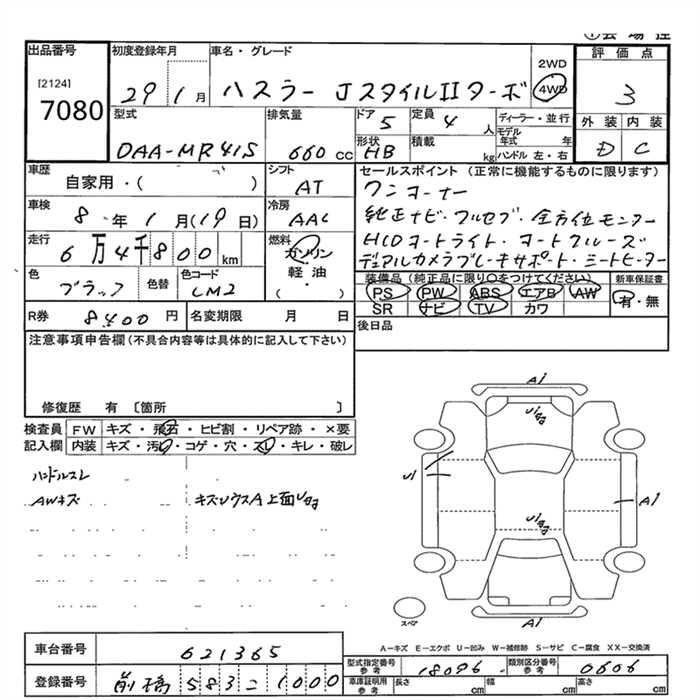 出品番号
[2124]
7080
初度登録年月
29 1月
車名・グレード
ハスラー JスタイルIIターボ
2WD
4WD
評価点
3
外装 内装
D C
型式
DAA-MR41S
排気量
660 cc
ドア 5
定員 4 人
形状 HB
積載 kg
ディーラー・並行
モデル年式 年
ハンドル 左・右
車歴
自家用・( )
シフト
AT
車検
8年1月(19日)
冷房
AAC
走行
6万4千800km
燃料
ガソリン
軽油・
( )
色
ブラック
色替
色コード
LM2
セールスポイント (正常に機能するものに限ります)
ワンオーナー
純正ナビ・フルセグ・全方位モニター
HIDオートライト・オートクルーズ
デュアルカメラブレーキサポート・シートヒーター
装備品 (純正品に限り○をつけてください)
新車保証書
PS PW ABS エアB AW
有・無
SR ナビ TV カワ
R券 8400円
名変期限 月 日
後日品
注意事項申告欄(不具合内容等は具体的に記入して下さい)
修復歴 有〔箇所 〕
検査員記入欄
FW キズ・飛石・ヒビ割・リペア跡・×要
内装 キズ・汚レ・コゲ・穴・スレ・キレ・破レ
ハンドルスレ
AWキズ
キズソウスA 上面Uggg
A1
U1
A1
A1
スペア
A-キズ E-エクボ U-凹み W-補修跡 S-サビ C-腐食 XX-交換済
車台番号 621365
登録番号 前橋 583 こ 1000
型式指定番号 参考 18096
類別区分番号 参考 0606
車庫証明用 参考 長さ cm 幅 cm 高さ cm